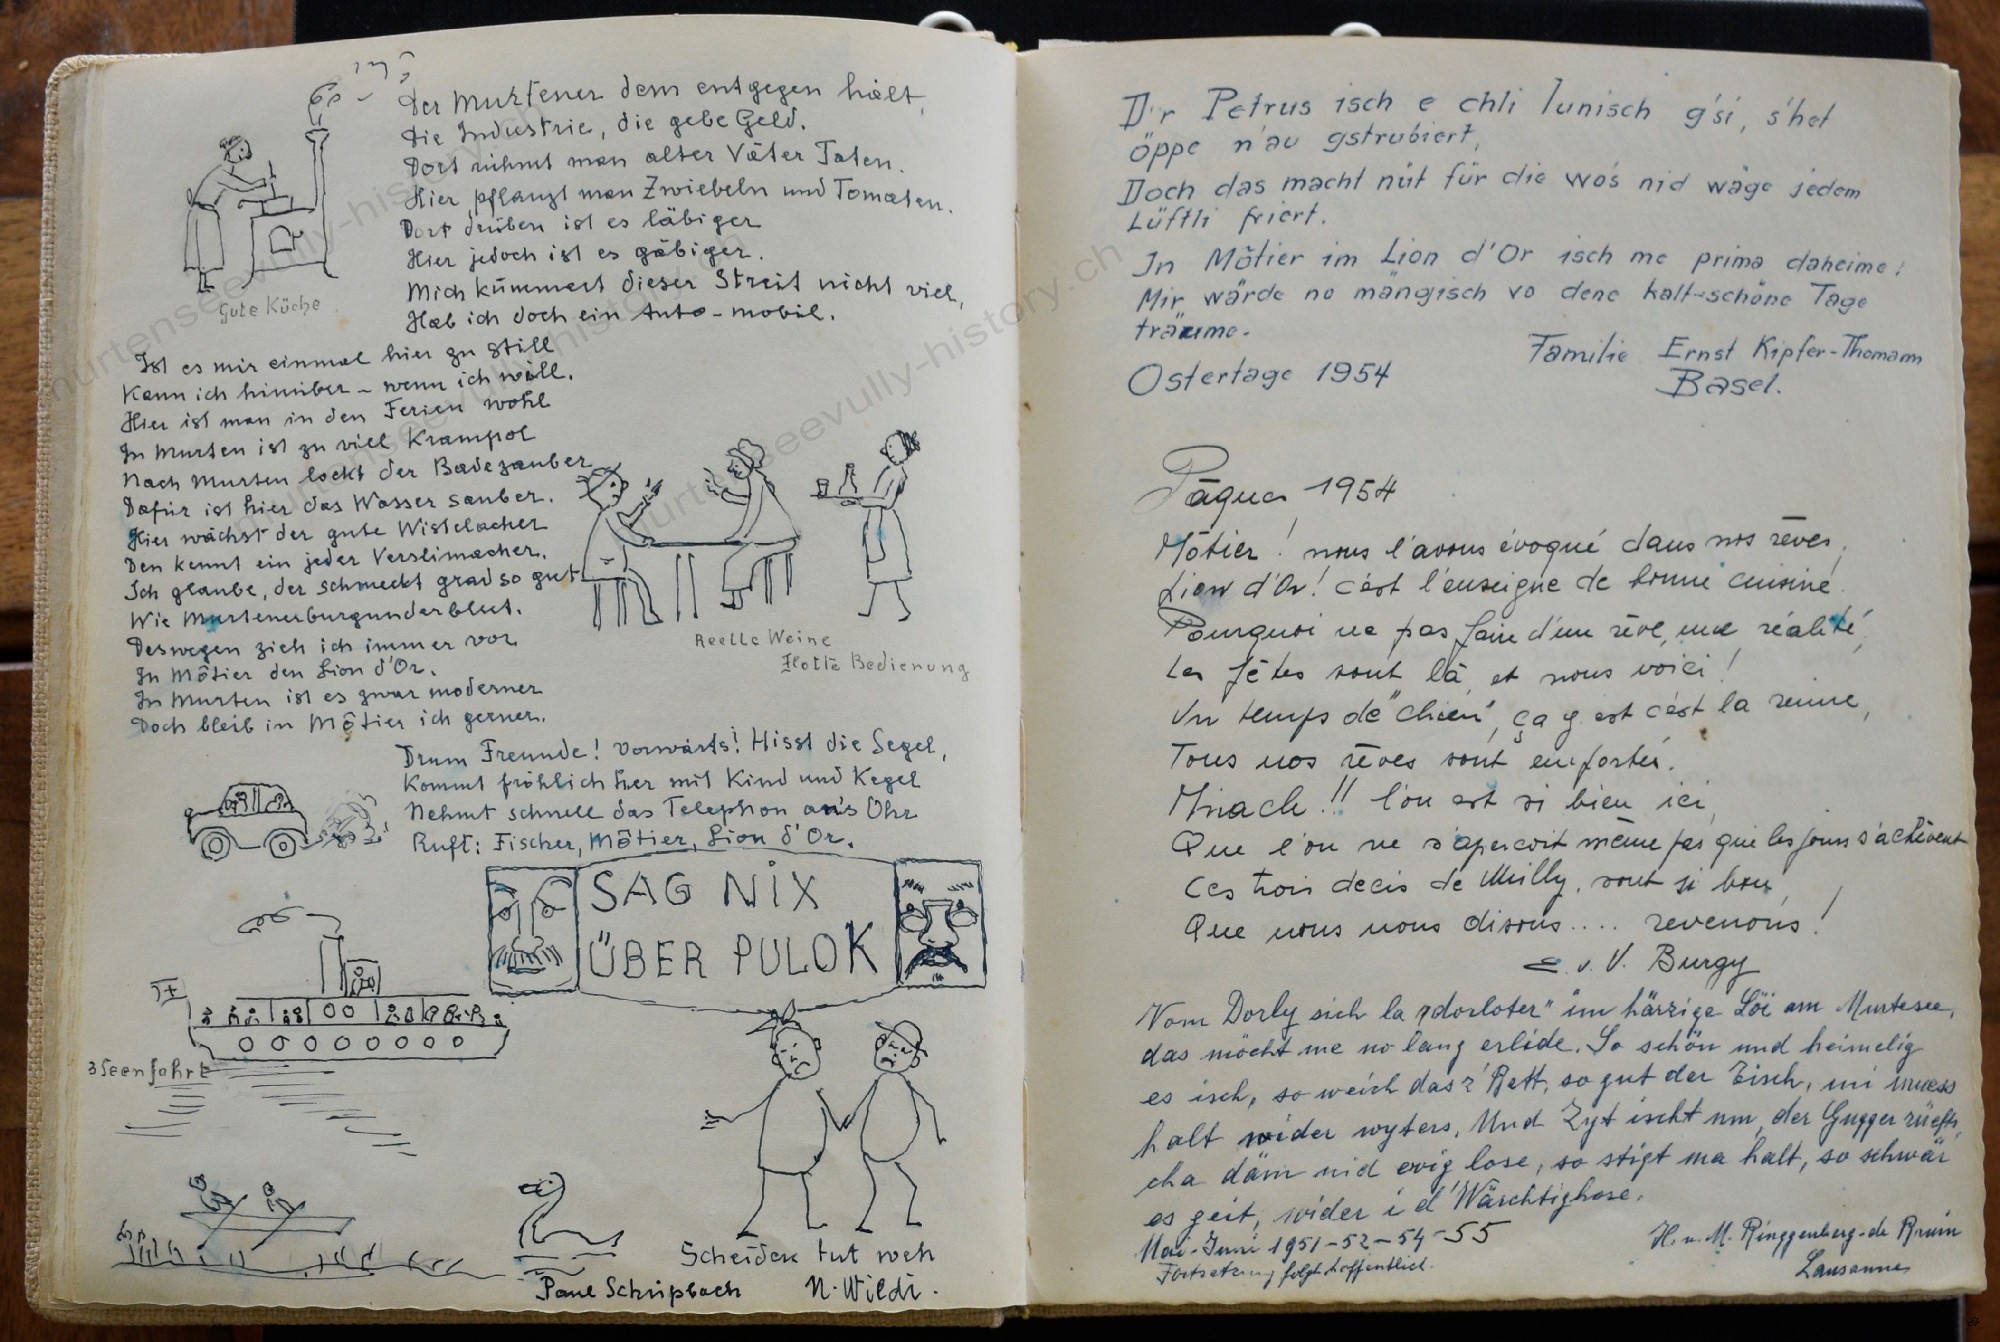 Der Murtener dem entgegen hält,
Die Industrie, die gebe Geld.
Dort rühmt man alter Väter Taten.
Hier pflanzt man Zwiebeln und Tomaten.
Dort drüben ist es läbiger
Hier jedoch ist es gäbiger.
Mich kümmert dieser Streit nicht viel,
Hab ich doch ein Auto-mobil.
Gute Küche
Ist es mir einmal hier zu still
Kann ich hinüber – wenn ich will.
Hier ist man in den Ferien wohl
In Murten ist zu viel Krampol
Nach Murten lockt der Badezauber
Dafür ist hier das Wasser sauber.
Hier wächst der gute Wistelacher
Den kennt ein jeder Verslimacher.
Ich glaube, der schmeckt grad so gut
Wie Murtenerburgunderblut.
Deswegen zieh ich immer vor
In Môtier den Lion d'Or.
In Murten ist es zwar moderner
Doch bleib in Môtier ich gerner.
Reelle Weine
Flotte Bedienung
Drum Freunde! Vorwärts! Hisst die Segel,
Kommt fröhlich her mit Kind und Kegel
Nehmt schnell das Telephon an's Ohr
Ruft: Fischer, Môtier, Lion d'Or.
SAG NIX
ÜBER PULOK
3 Seenfahrt
Scheiden tut weh
Paul Schüpbach N. Wildi.
D'r Petrus isch e chli lunisch g'si, s'het
öppe n'au gstrubiert,
Doch das macht nüt für die wo's nid wäge jedem
Lüftli friert.
In Môtier im Lion d'Or isch me prima daheime!
Mir wärde no mängisch vo dene kalt-schöne Tage
träume.
Familie Ernst Kipfer-Thomann
Ostertage 1954 Basel.
Pâques 1954
Môtier! nous l'avons évoqué dans nos rêves,
Lion d'Or! c'est l'enseigne de bonne cuisine.
Pourquoi ne pas faire d'un rêve, une réalité,
Les fêtes sont là, et nous voici!
Un temps de "chien", ça y est c'est la ruine,
Tous nos rêves sont emportés.
Mirach!! l'on est si bien ici,
Que l'on ne s'aperçoit même pas que les jours s'achèvent
Ces trois decis de Vuilly, sont si bon,
Que nous nous disons.... revenons!
E. u. V. Burgy
Vom Dorly sich la "dorloter" im härzige Löi am Murtesee,
das möcht me no lang erlide. So schön und heimelig
es isch, so weich das z'Bett, so gut der Tisch, mi muess
halt wider wyters. Und Zyt ischt um, der Gugger rüefts,
cha däm nid ewig lose, so stigt ma halt, so schwär
es geit, wider i d'Wärchtighose.
Mai-Juni 1951-52-54-55
H. u. M. Ringgenberg-de Bruin
Fortsetzung folgt hoffentlich.
Lausanne
murtenseevully-history.ch
murtenseevully-history.ch
murtenseevully-history.ch